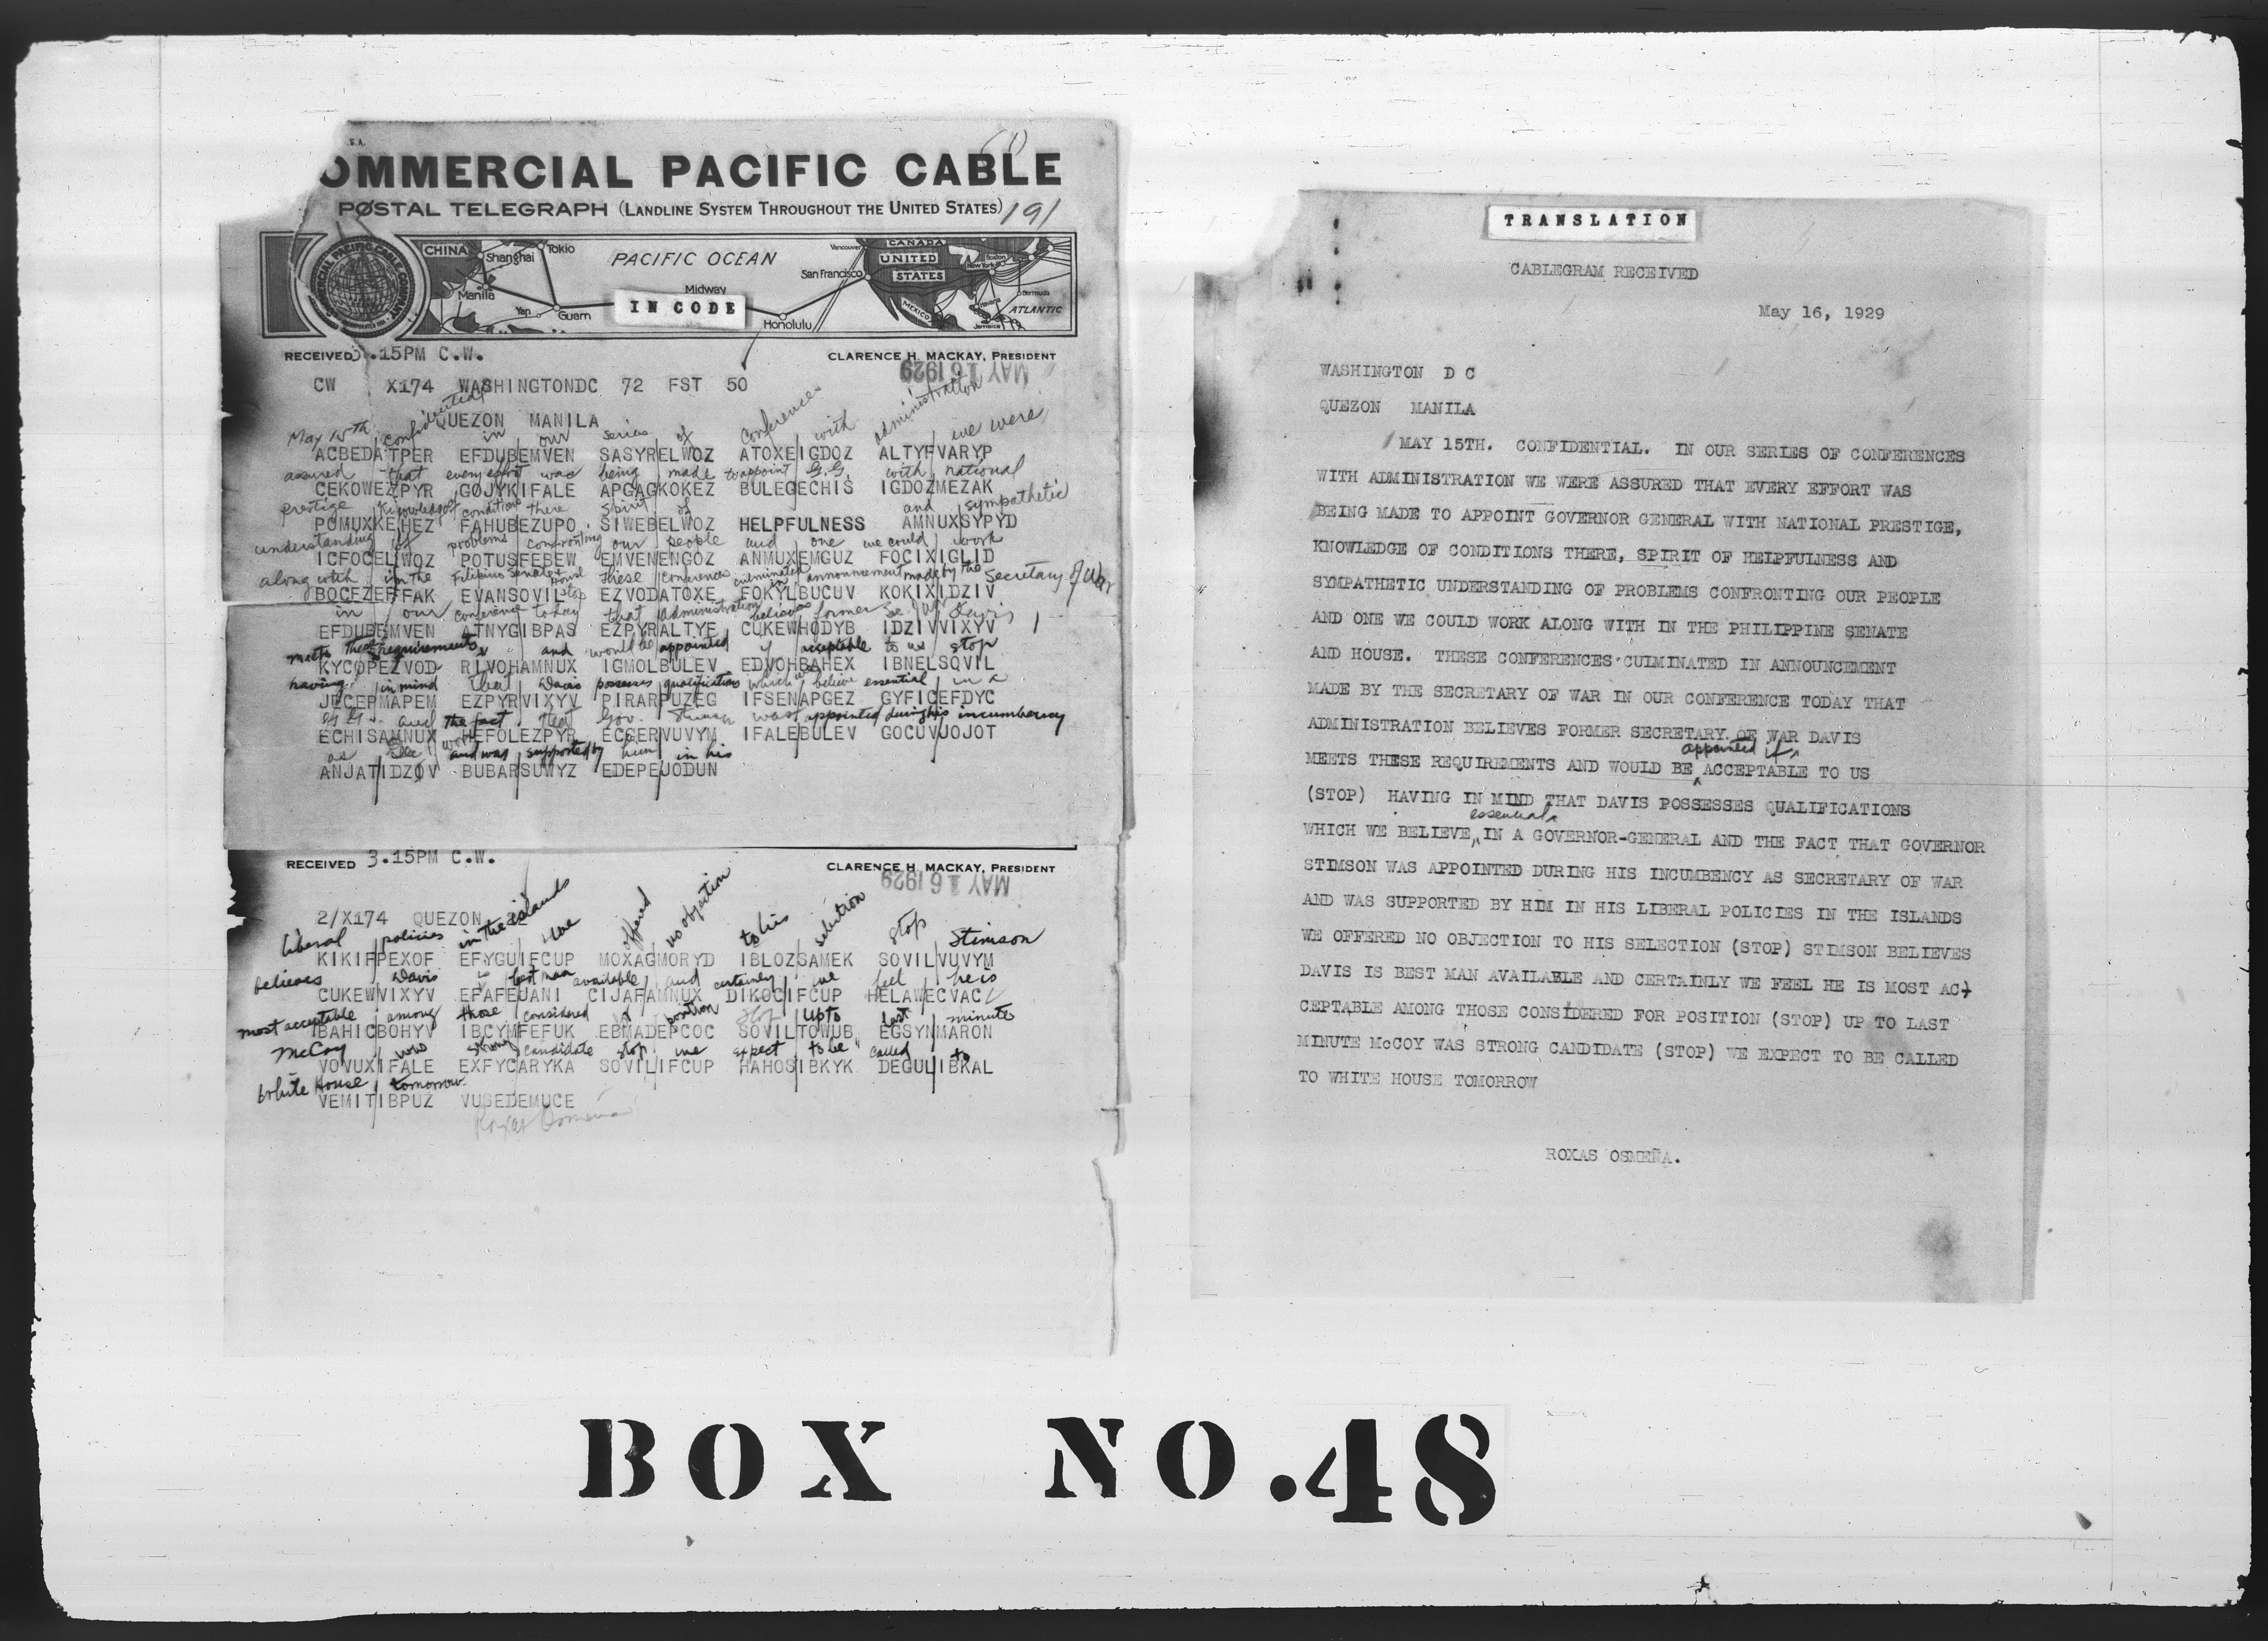 S.A.
OMMERCIAL PACIFIC CABLE
POSTAL TELEGRAPH (LANDLINE SYSTEM THROUGHOUT THE UNITED STATES)
191
COMMERCIAL PACIFIC CABLE COMPANY
CHINA
Tokio
Shanghai
PACIFIC OCEAN
Vancouver
CANADA
UNITED
STATES
Boston
New York
San Francisco
Manila
Midway
Bermuda
Yap
Guam
IN CODE
Honolulu
MEXICO
Havana
Jamaica
ATLANTIC
RECEIVED 3.15PM C.W.
CLARENCE H. MACKAY, PRESIDENT
MAY 16 1929
CW X174 WASHINGTONDC 72 FST 50
QUEZON MANILA
May 15th confidential in our series of conferences with administration we were
ACBEDATPER EFDUBEMVEN SASYRELWOZ ATOXEIGDOZ ALTYFVARYP
assured that every effort was being made to appoint G.G. with national
CEKOWEZPYR GOJYKIFALE APGAGKOKEZ BULEGECHIS IGDOZMEZAK
prestige knowledge of conditions there spirit of and sympathetic
POMUXKEHEZ FAHUBEZUPO SIWEBELWOZ HELPFULNESS AMNUXSYPYD
understanding of problems confronting our people and one we could work
ICFOCELWOZ POTUSFEBEW EMVENENGOZ ANMUXEMGUZ FOCIXIGLID
along with in the Filipino Senate & House stop these conferences culminated in announcement made by the Secretary of War
BOCEZEFFAK EVANSOVIL EZVODATOXE FOKYLBUCUV KOKIXIDZIV
in our conference today that administration believes former Sec. War Davis
EFDUBEMVEN ATNYGIBPAS EZPYRALTYF CUKEWHODYB IDZIVVIXYV
meets these requirements and would be appointed if acceptable to us stop
KYCOPEZVOD RIVOHAMNUX IGMOLBULEV EDVOHBAHEX IBNELSOVIL
having in mind that Davis possesses qualifications which we believe essential in a
JECEPMAPEM EZPYRVIXYV PIRARPUZEG IFSENAPGEZ GYFICEFDYC
of G.G. and the fact that Gov. Stimson was appointed during his incumbency
ECHISAMNUX HEFOLEZPYR ECGERVUVYM IFALEBULEV GOCUVUOJOT
as Sec War and was supported by him in his
ANJATIDZOV BUBARSUWYZ EDEPEUODUN
RECEIVED 3.15PM C.W.
CLARENCE H. MACKAY, PRESIDENT
MAY 16 1929
2/X174 QUEZON 22
liberal policies in the islands we offered no objection to his selection stop Stimson
KIKIFPEXOF EFYGUIFCUP MOXAGMORYD IBLOZSAMEK SOVILVUVYM
believes Davis is best man available and certainly we feel he is
CUKEWVIXYV EFAFEUANI CIJAFAMNUX DIKOCIFCUP HELAWECVAC
most acceptable among those considered for position stop up to last minute
BAHICBOHYV IBCYMFEFUK EBMADEPCOC SOVILTOWUB EGSYNMARON
McCoy was strong candidate stop we expect to be called to
VOVUXIFALE EXFYCARYKA SOVILIFCUP HAHOSIBKYK DEGULIBKAL
White House tomorrow
VEMITIBPUZ VUSEDEMUCE
Roxas Osmeña
TRANSLATION
CABLEGRAM RECEIVED
May 16, 1929
WASHINGTON D C
QUEZON MANILA
MAY 15TH. CONFIDENTIAL. IN OUR SERIES OF CONFERENCES
WITH ADMINISTRATION WE WERE ASSURED THAT EVERY EFFORT WAS
BEING MADE TO APPOINT GOVERNOR GENERAL WITH NATIONAL PRESTIGE,
KNOWLEDGE OF CONDITIONS THERE, SPIRIT OF HELPFULNESS AND
SYMPATHETIC UNDERSTANDING OF PROBLEMS CONFRONTING OUR PEOPLE
AND ONE WE COULD WORK ALONG WITH IN THE PHILIPPINE SENATE
AND HOUSE. THESE CONFERENCES CULMINATED IN ANNOUNCEMENT
MADE BY THE SECRETARY OF WAR IN OUR CONFERENCE TODAY THAT
ADMINISTRATION BELIEVES FORMER SECRETARY OF WAR DAVIS
appointed if
MEETS THESE REQUIREMENTS AND WOULD BE ACCEPTABLE TO US
(STOP) HAVING IN MIND THAT DAVIS POSSESSES QUALIFICATIONS
essential
WHICH WE BELIEVE IN A GOVERNOR-GENERAL AND THE FACT THAT GOVERNOR
STIMSON WAS APPOINTED DURING HIS INCUMBENCY AS SECRETARY OF WAR
AND WAS SUPPORTED BY HIM IN HIS LIBERAL POLICIES IN THE ISLANDS
WE OFFERED NO OBJECTION TO HIS SELECTION (STOP) STIMSON BELIEVES
DAVIS IS BEST MAN AVAILABLE AND CERTAINLY WE FEEL HE IS MOST AC-
CEPTABLE AMONG THOSE CONSIDERED FOR POSITION (STOP) UP TO LAST
MINUTE McCOY WAS STRONG CANDIDATE (STOP) WE EXPECT TO BE CALLED
TO WHITE HOUSE TOMORROW
ROXAS OSMEÑA.
BOX NO.48